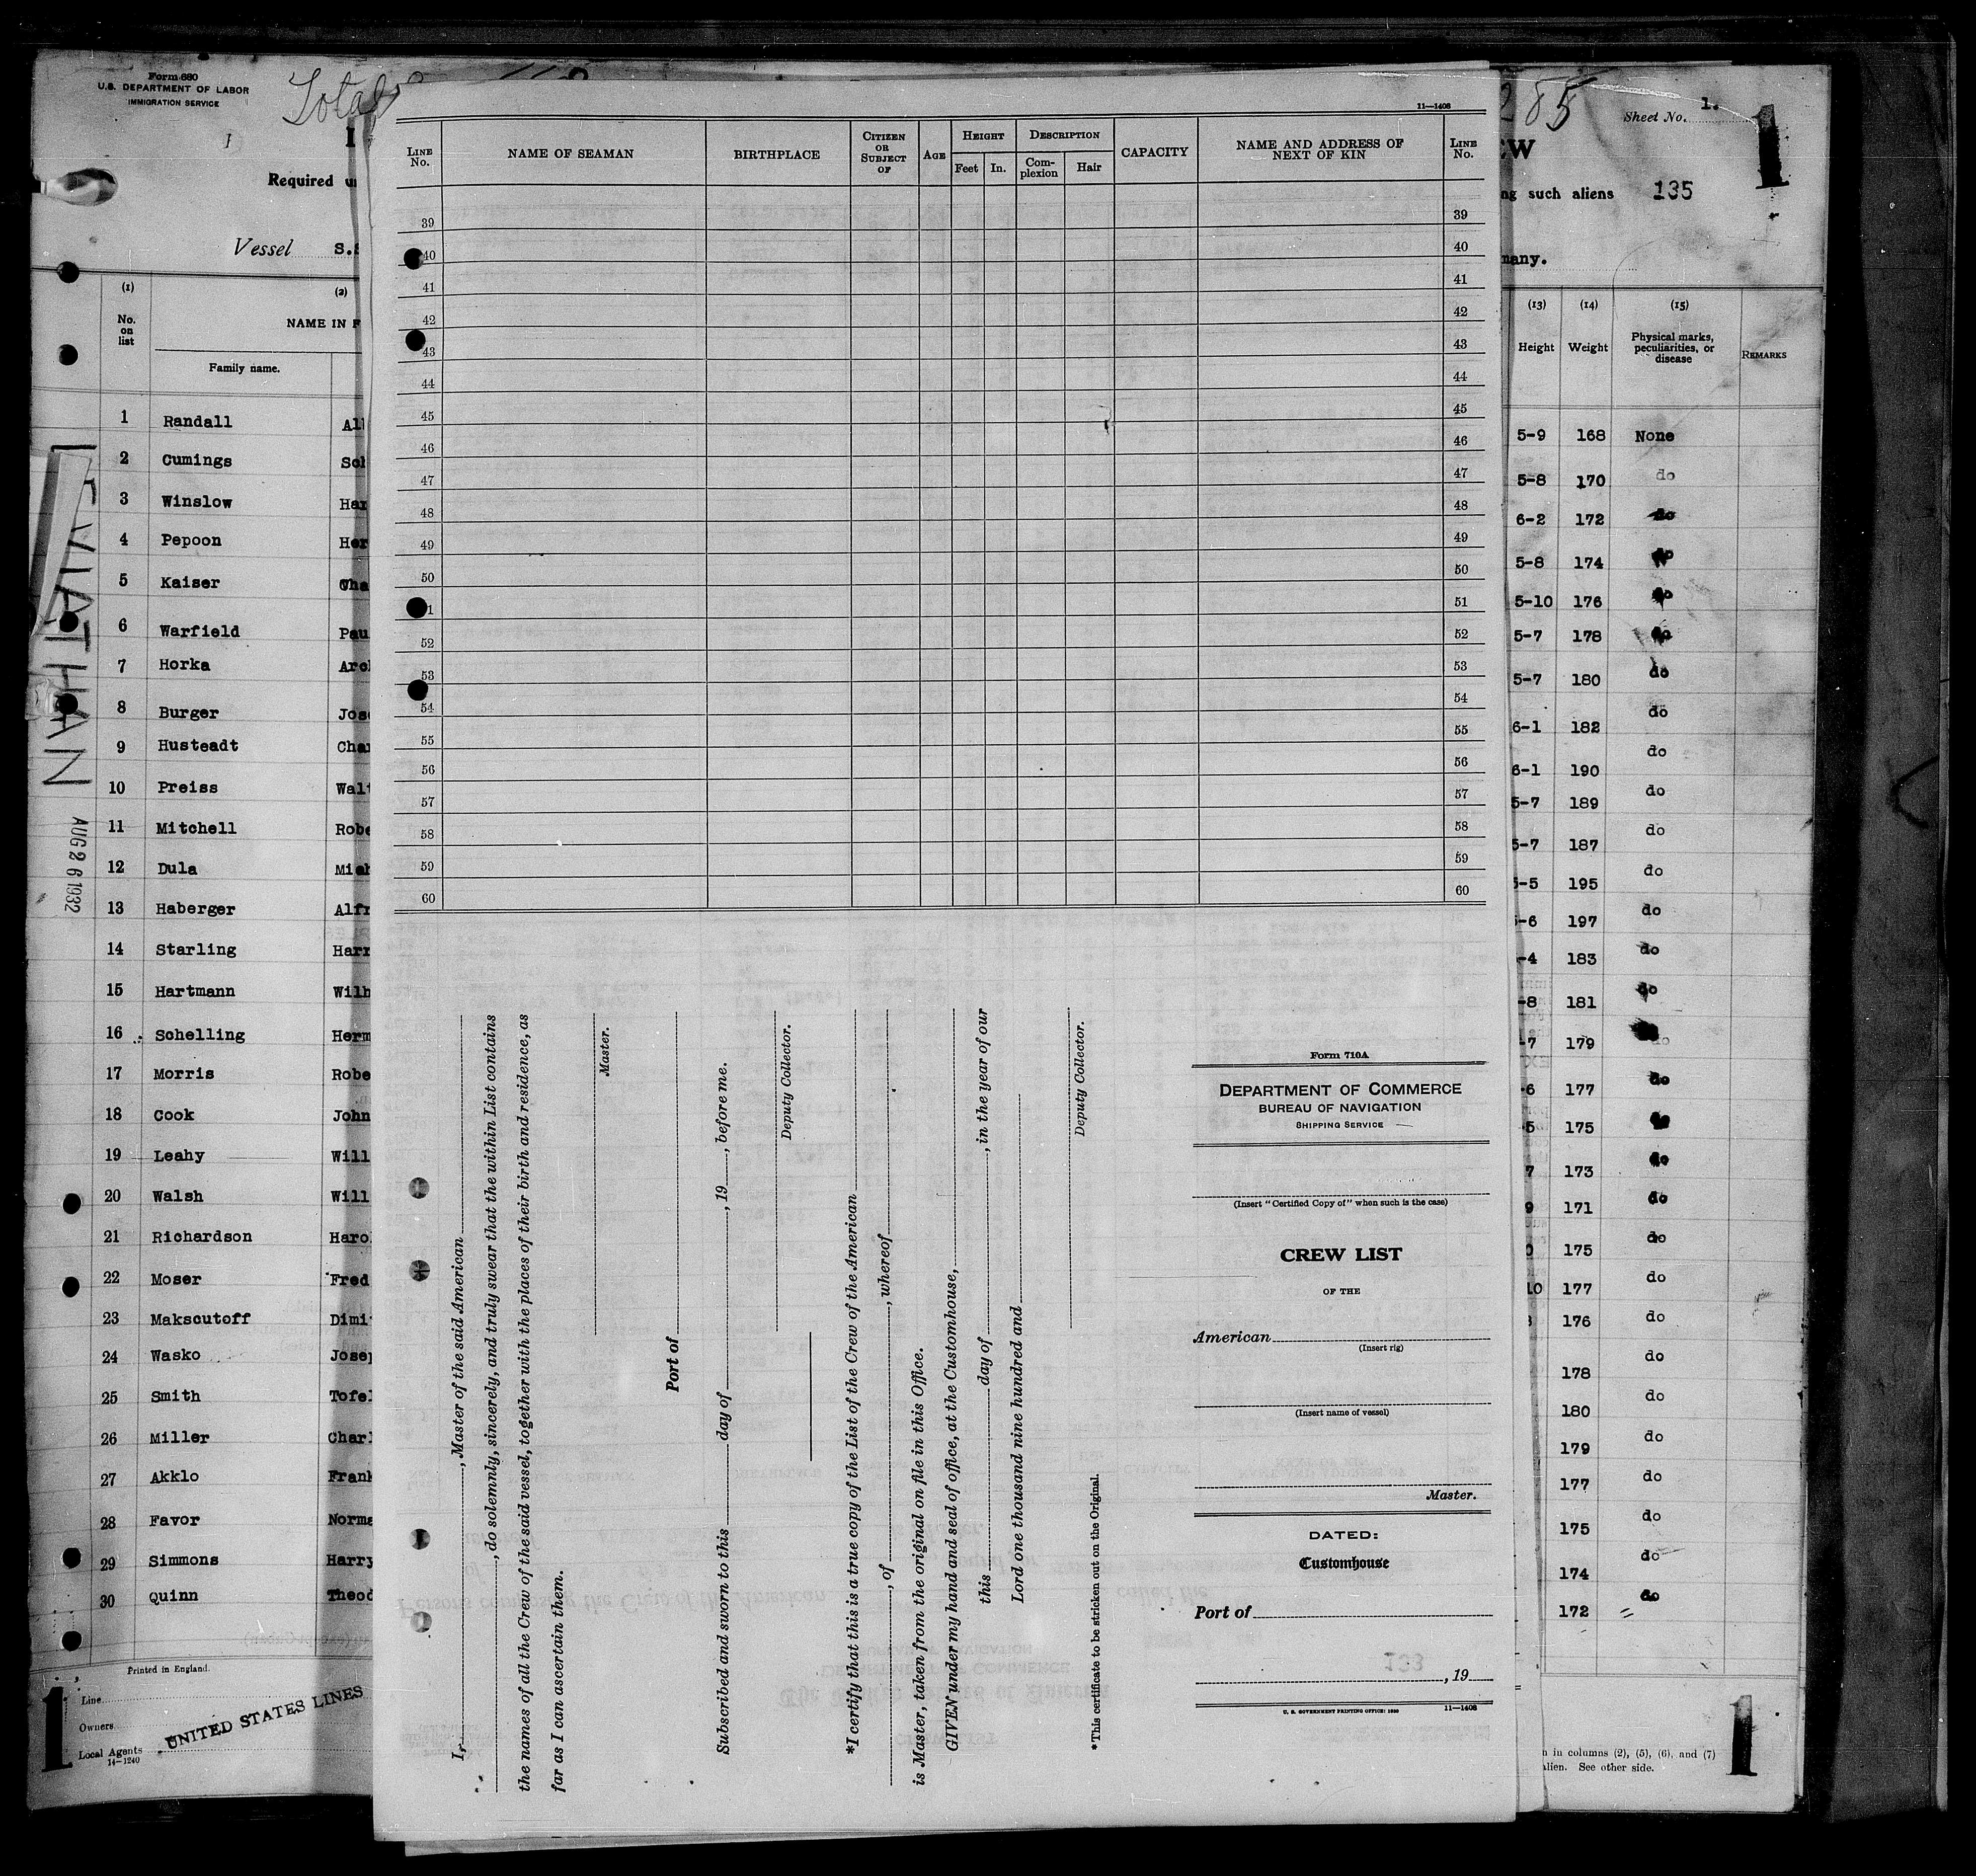 Form 680
U.S. DEPARTMENT OF LABOR
IMMIGRATION SERVICE
Total
Required u
Vessel S.S
(1) (2)
No. on list
NAME IN F
Family name.
1 Randall Al
2 Cumings Sol
3 Winslow Har
4 Pepoon Her
5 Kaiser Cha
6 Warfield Pau
7 Horka Arc
8 Burger Jos
9 Husteadt Cha
10 Preiss Walt
11 Mitchell Robe
12 Dula Mich
13 Haberger Alfr
14 Starling Harr
15 Hartmann Wilh
16 Schelling Herm
17 Morris Robe
18 Cook John
19 Leahy Will
20 Walsh Will
21 Richardson Haro
22 Moser Fred
23 Maksoutoff Dimi
24 Wasko Josep
25 Smith Tofel
26 Miller Charl
27 Akklo Frank
28 Favor Norma
29 Simmons Harry
30 Quinn Theod
Printed in England.
Line
Owners
Local Agents
14-1240
UNITED STATES LINES
1
VIATHAN
AUG 26 1932
11—1408
LINE No.
NAME OF SEAMAN
BIRTHPLACE
CITIZEN OR SUBJECT OF
AGE
HEIGHT
Feet In.
DESCRIPTION
Complexion Hair
CAPACITY
NAME AND ADDRESS OF NEXT OF KIN
LINE No.
39 39
40 40
41 41
42 42
43 43
44 44
45 45
46 46
47 47
48 48
49 49
50 50
1 51
52 52
53 53
54 54
55 55
56 56
57 57
58 58
59 59
60 60
I, , Master of the said American
, do solemnly, sincerely, and truly swear that the within List contains
the names of all the Crew of the said vessel, together with the places of their birth and residence, as
far as I can ascertain them.
Master.
Port of
Subscribed and sworn to this day of , 19 , before me.
Deputy Collector.
*I certify that this is a true copy of the List of the Crew of the American
, of , whereof
is Master, taken from the original on file in this Office.
GIVEN under my hand and seal of office, at the Customhouse,
this day of , in the year of our
Lord one thousand nine hundred and
Deputy Collector.
*This certificate to be stricken out on the Original.
Form 710A
DEPARTMENT OF COMMERCE
BUREAU OF NAVIGATION
SHIPPING SERVICE
(Insert "Certified Copy of" when such is the case)
CREW LIST
OF THE
American
(Insert rig)
(Insert name of vessel)
Master.
DATED:
Customhouse
Port of
, 19
U. S. GOVERNMENT PRINTING OFFICE: 1930 11—1408
85
Sheet No. 1.
1
EW
ng such aliens 135
many.
(13) (14) (15)
Height Weight Physical marks, peculiarities, or disease REMARKS
5-9 168 None
5-8 170 do
6-2 172 do
5-8 174 do
5-10 176 do
5-7 178 do
5-7 180 do
6-1 182 do
6-1 190 do
5-7 189 do
5-7 187 do
-5 195 do
-6 197 do
-4 183 do
-8 181 do
-7 179 do
-6 177 do
5 175
7 173 do
9 171 do
0 175 do
10 177 do
176 do
178 do
180 do
179 do
177 do
175 do
174 do
172 do
n in columns (2), (5), (6), and (7)
alien. See other side.
1